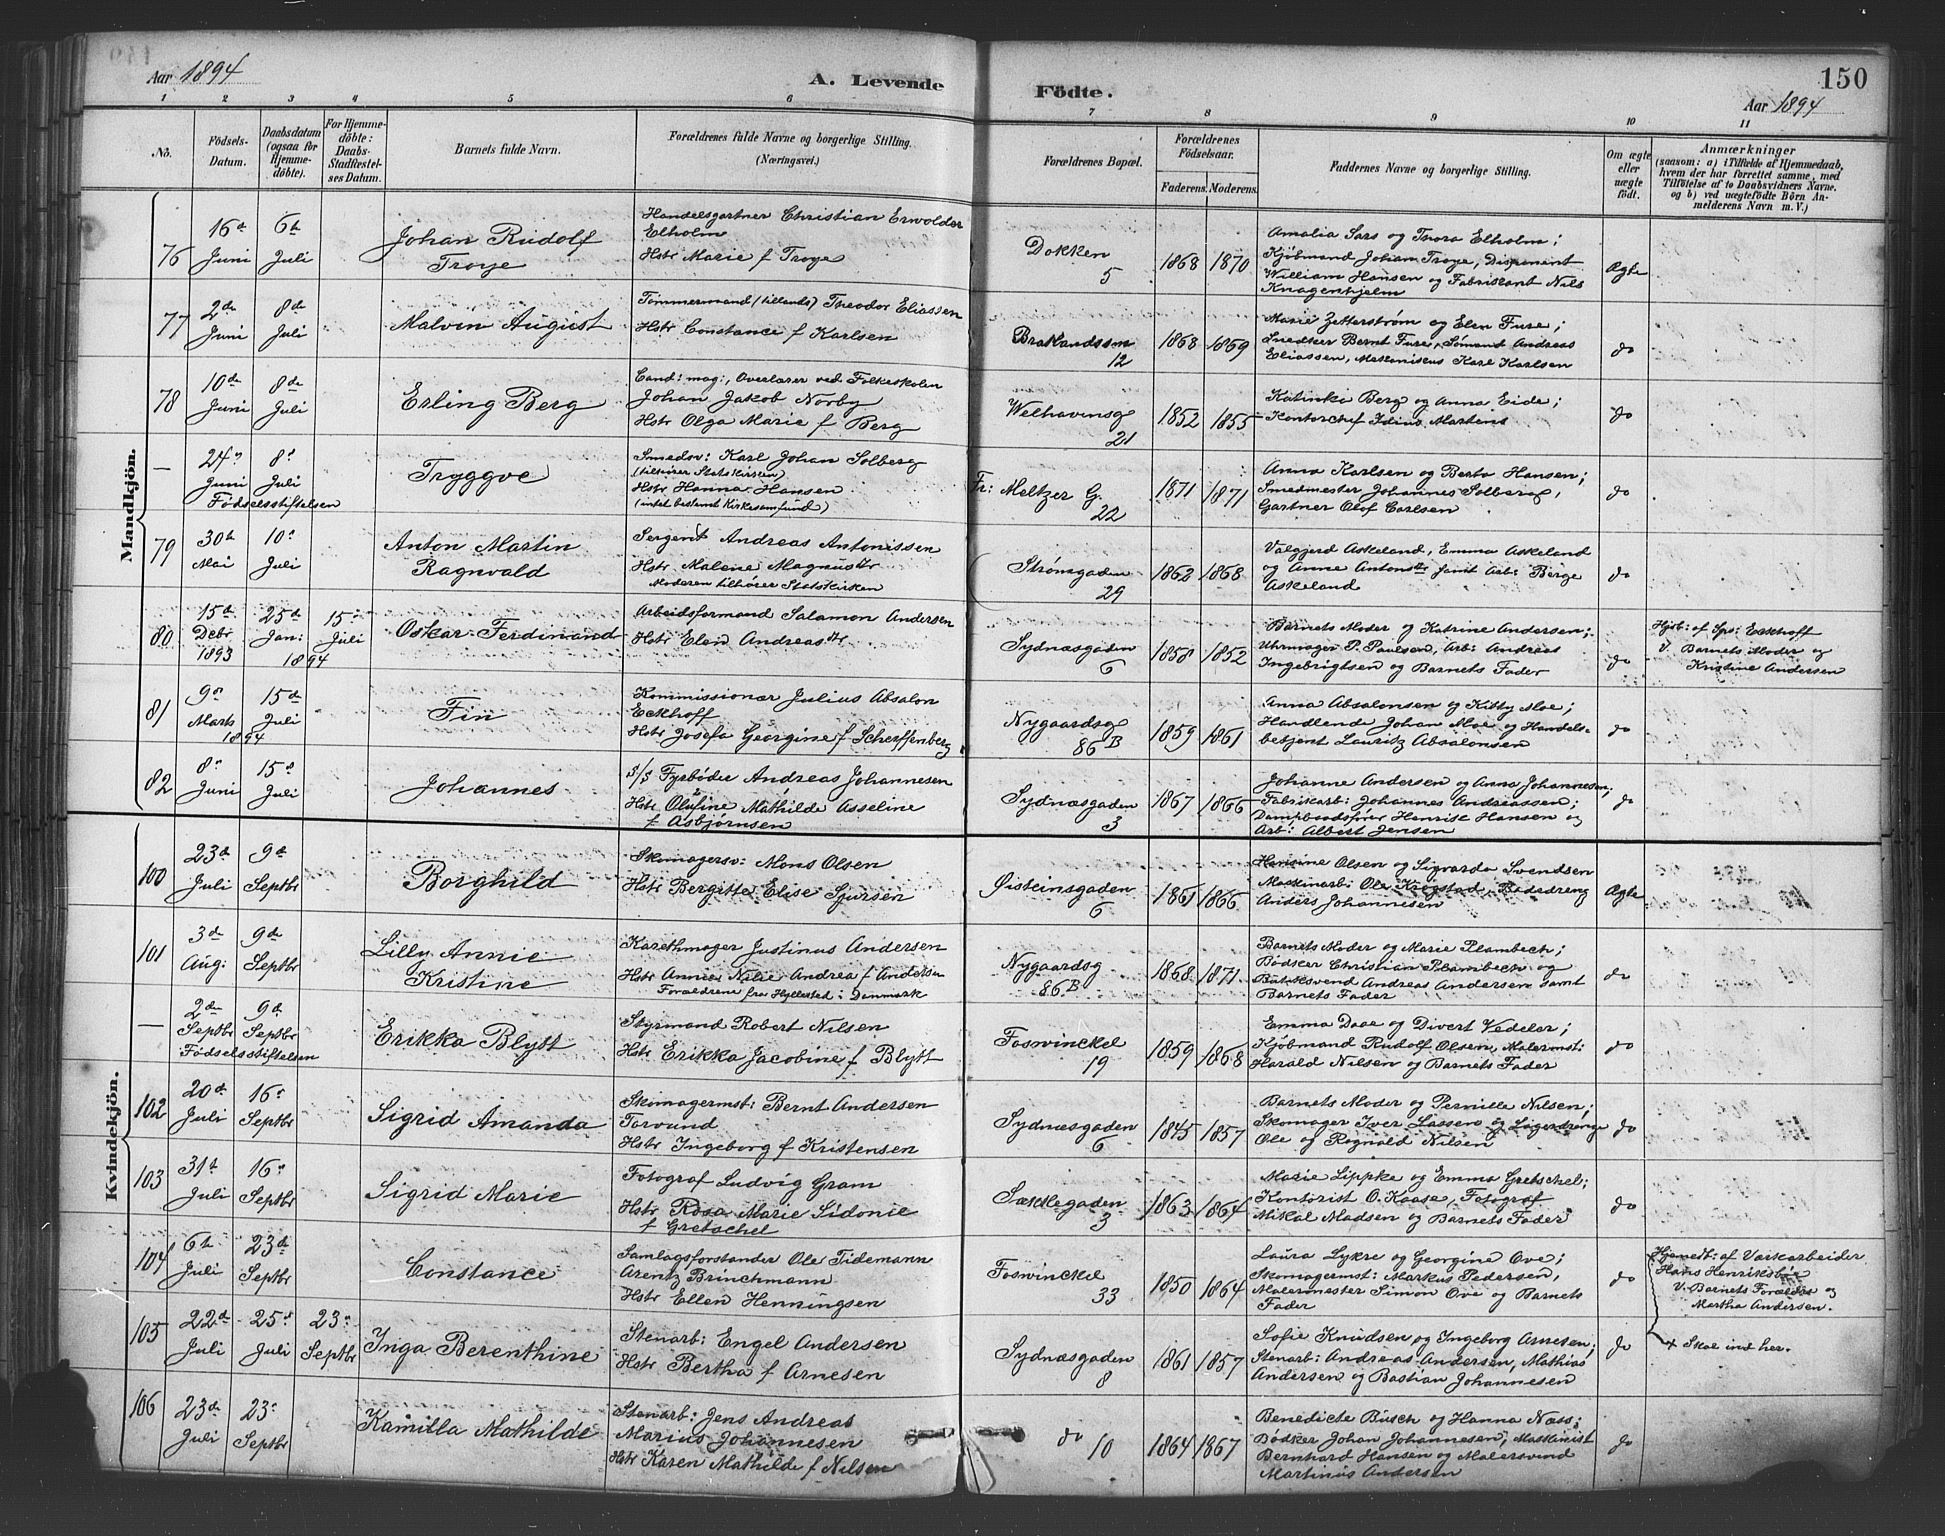 Aar 1894
A. Levende
Födte.
150
Aar 1894
1 2 3 4 5 6 7 8 9 10 11
No.
Födsels-
Datum.
Daabsdatum
(ogsaa for
Hjemme-
döbte).
For Hjemme-
döbte:
Daabs-
Stadfæstel-
ses Datum.
Barnets fulde Navn.
Forældrenes fulde Navne og borgerlige Stilling.
(Næringsvei.)
Forældrenes Bopæl.
Forældrenes
Födselsaar.
Faderens. Moderens.
Faddernes Navne og borgerlige Stilling.
Om ægte
eller
uægte
födt.
Anmærkninger
(saasom: a) i Tilfælde af Hjemmedaab,
hvem der har forrettet samme, med
Tilföielse af to Daabsvidners Navne.
og b) ved uægtefödte Börn An-
melderens Navn m. V.)
Mandkjön.
76
16de
Juni
6te
Juli
Johan Rudolf
Troye
Handelsgartner Christian Erwolder
Elholm
Hstr Marie f Troye
Dokken
5
1868 1870
Amalia Sars og Thora Elholm;
Kjøbmand Johan Troye, Disponent
William Hansen og Fabrikant Nils
Knagenhjelm
Ægte
77
2de
Juni
8de
Juli
Malvin August
Tømmermand (tillands) Theodor Eliassen
Hstr Constance f Karlsen
12
1868 1869
Marie Zetterstrøm og Elen Fure;
Snedker Bernt Fure, Sømand Andreas
Eliassen, Mekanikus Karl Karlsen
do
78
10de
Juni
8de
Juli
Erling Berg
Cand: mag:, Overlærer ved Folkeskolen
Johan Jakob Norby
Hstr Olga Marie f Berg
Welhavensg
21
1852 1855
Katinka Berg og Anna Eide;
Kontorchef Idius Martens
do
—
24"
Juni
8"
Juli
Födselsstiftelsen
Tryggve
Smedsv: Karl Johan Solberg
(tilhører Statskirken)
Hstr Hanna Hansen
(intet bestemt Kirkesamfund)
Fr: Meltzer G.
22
1871 1871
Anna Karlsen og Berta Hansen;
Smedmester Johannes Solberg,
Gartner Olof Carlsen
do
79
30te
Mai
10"
Juli
Anton Martin
Ragnvald
Sergent Andreas Antonissen
Hstr Malene Magnusdtr
Moderen tilhører Statskirken
Strømgaden
29
1862 1868
Valgjerd Askeland, Emma Askeland
og Anne Antonsdtr samt Arb: Berge
Askeland
do
80
15de
Debr
1893
25de
Jan:
1894
15"
Juli
Oskar Ferdinand
Arbeidsformand Salamon Andersen
Hstr Elen Andreasdtr
Sydnæsgaden
6
1858 1852
Barnets Moder og Katrine Andersen;
Uhrmager P. Paulsen, Arb: Andreas
Ingebrigtsen og Barnets Fader
do
Hjdb: af Sps: Eckhoff
V. Barnets Moder og
Kristine Andersen
81
9"
Marts
1894
15de
Juli
Fin
Kommissionær Julius Absalon
Eckhoff
Hstr Josefa Georgine f Scherffenberg
Nygaardsg
86B
1859 1861
Anna Absalonsen og Kitty Moe;
Handlende Johan Moe og Handels-
betjent Lauritz Absalonsen
do
82
8"
Juni
15"
Juli
Johannes
S/S Fyrbøder Andreas Johannesen
Hstr Olufine Mathilde Asseline
f Asbjørnsen
Sydnæsgaden
3
1867 1866
Johanne Andersen og Anna Johannesen;
Fabrikarb: Johannes Andreassen;
Dampbaadsfører Henrik Hansen og
Arb: Albert Jensen
do
Kvindekjön.
100
23de
Juli
9de
Septbr
Borghild
Skomagersv: Mons Olsen
Hstr Bergitte Elise Sjursen
Øisteinsgaden
6
1861 1866
Hansine Olsen og Sigvarda Svendsen
Maskinarb: Ole Krogstad, Bødedreng
Anders Johannesen
Ægte
101
3de
Aug:
9de
Septbr
Lilly Annie
Kristine
Karethmager Justinus Andersen
Hstr Annie Nilie Andrea f Andersen
Forældrene fra Hyllested i Danmark
Nygaardsg
86.B
1868 1871
Barnets Moder og Marie Plambech;
Bødker Christian Plambech og
Andreas Andersen samt
Barnets Fader
do
—
2de
Septbr
9de
Septbr
Födselsstiftelsen
Erikka Blytt
Styrmand Robert Nilsen
Hstr Erikka Jacobine f Blytt
Foswinckel
19
1859 1868
Emma Daae og Divert Vedeler;
Kjøbmand Rudolf Olsen, Malermst:
Harald Nilsen og Barnets Fader
do
102
20de
Juli
16"
Septbr
Sigrid Amanda
Skomagermst: Bernt Andersen
Torvund
Hstr Ingeborg f Kristensen
Sydnæsgaden
6
1845 1857
Barnets Moder og Pernille Nilsen;
Skomager Iver Lassen og Løgerdrenge
Ole og Ragnald Nilsen
do
103
31te
Juli
16"
Septbr
Sigrid Marie
Fotograf Ludvig Gram
Hstr Rosa Marie Sidonie
f Gretschel
Sækkegaden
3
1863 1864
Marie Lippke og Emma Gretschel;
Kontorist O. Kaase, Fotograf
Mikal Madsen og Barnets Fader
do
104
6te
Juli
23de
Septbr
Constance
Samlagsforstander Ole Tidemann
Arentz Brinchmann
Hstr Ellen Henningsen
Foswinckel
33
1850 1864
Laura Lykre og Georgine Ove;
Skomagermst: Markus Pedersen,
Malermester Simon Ove og Barnets
Fader
do
Hjemdb: af Værkarbeider
Hans Henriksbøe
V. Barnets Forældre og
Martha Andersen.
105
22de
Juli
25"
Juli
23"
Septbr
Inga Berenthine
Stenarb: Engel Andersen
Hstr Bertha f Arnesen
Sydnæsgaden
8
1861 1857
Sofie Knudsen og Ingeborg Arnesen;
Stenarb: Andreas Andersen, Mathias
Andersen og Bastian Johannesen
do
+ Skal ind her.
106
23de
Juli
23"
Septbr
Kamilla Mathilde
Stenarb: Jens Andreas
Marius Johannesen
Hstr Karen Mathilde f Nilsen
do 10
1864 1867
Benedicte Busch og Hanna Næss;
Bødker Johan Johannesen, Maskinist
Bernhard Hansen og Malersvend
Martinus Andersen
do